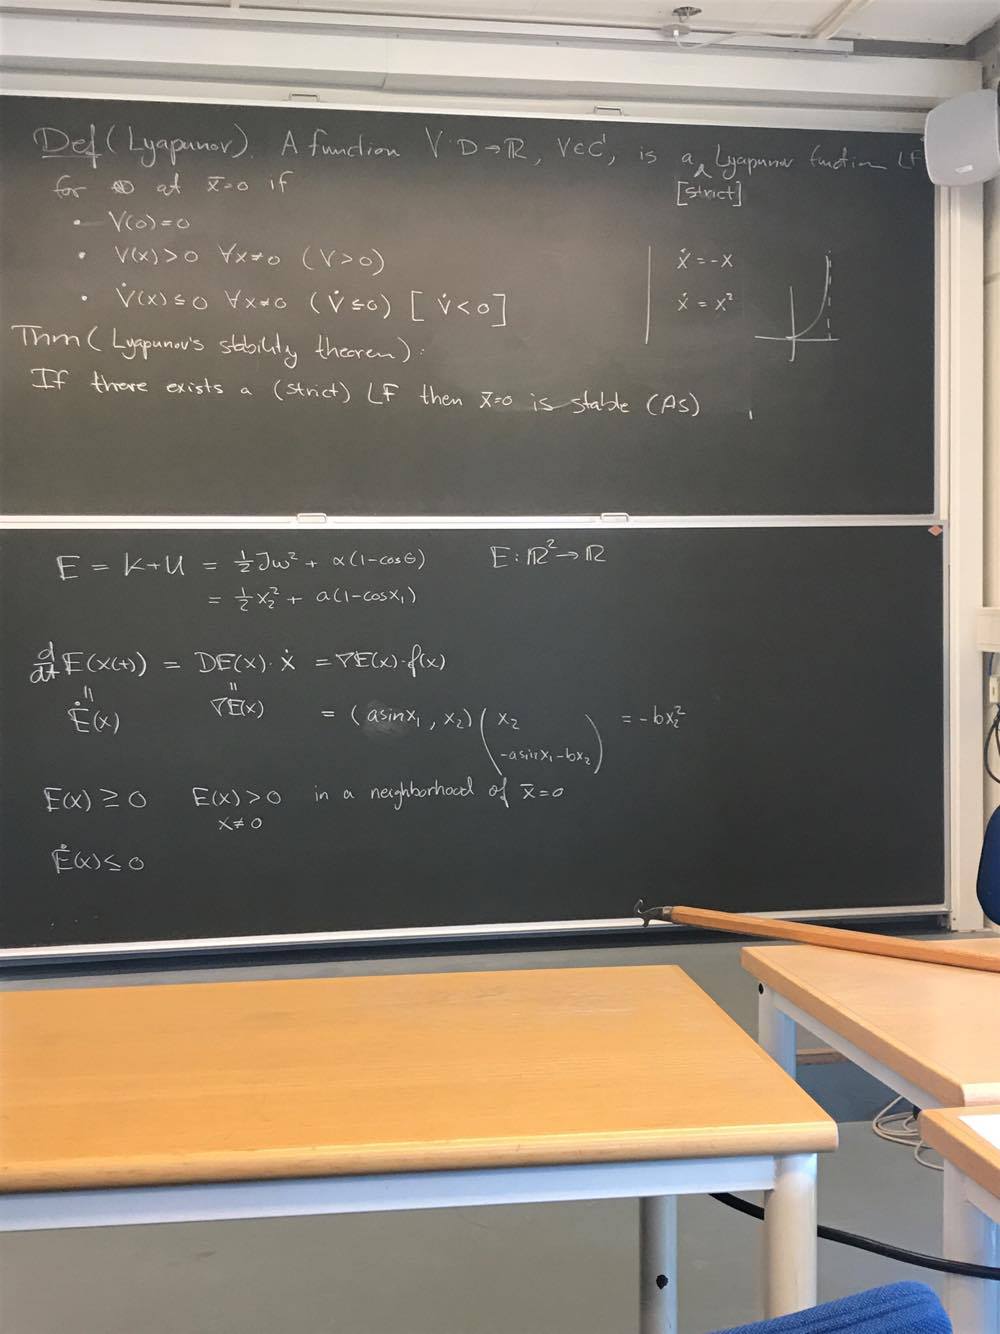 Def (Lyapunov). A function V: D→ℝ, V∈C¹, is a Lyapunov function LF
[strict]
for at x̄=0 if
• V(0)=0
• V(x)>0 ∀x≠0 (V>0)
• V̇(x)≤0 ∀x≠0 (V̇≤0) [V̇<0]
ẋ = -x
ẋ = x²
Thm (Lyapunov's stability theorem):
If there exists a (strict) LF then x̄=0 is stable (AS)
E = K+U = ½Jω² + α(1-cosθ) E: ℝ²→ℝ
= ½x₂² + a(1-cosx₁)
d/dt E(x(t)) = DE(x)·ẋ = ∇E(x)·f(x)
Ė(x) ∇E(x) = (asinx₁, x₂) (x₂ -asinx₁-bx₂) = -bx₂²
E(x) ≥ 0 E(x) > 0 in a neighborhood of x̄=0
x≠0
Ė(x) ≤ 0